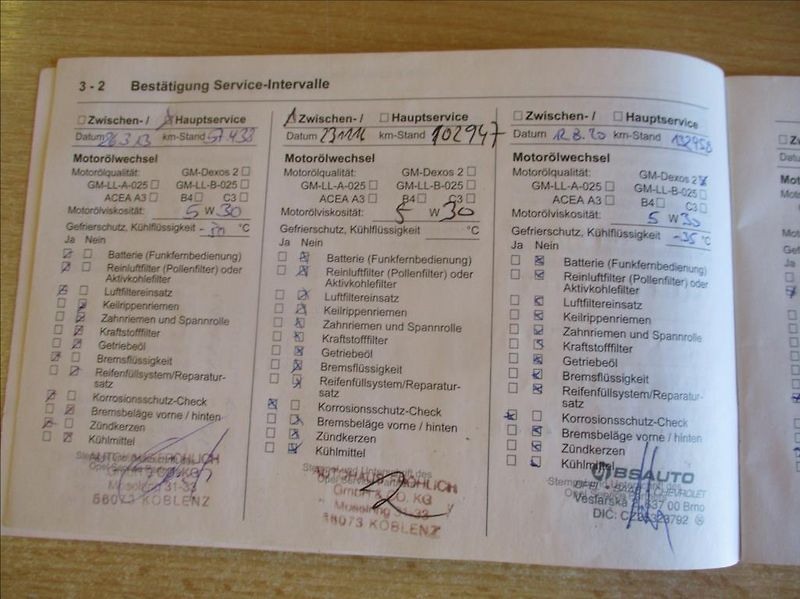 3 - 2 Bestätigung Service-Intervalle
Zwischen- / Hauptservice
Datum 26.3.13 km-Stand 57438
Motorölwechsel
Motorölqualität: GM-Dexos 2
GM-LL-A-025 GM-LL-B-025
ACEA A3 B4 C3
Motorölviskosität: 5 W 30
Gefrierschutz, Kühlflüssigkeit °C
Ja Nein
Batterie (Funkfernbedienung)
Reinluftfilter (Pollenfilter) oder
Aktivkohlefilter
Luftfiltereinsatz
Keilrippenriemen
Zahnriemen und Spannrolle
Kraftstofffilter
Getriebeöl
Bremsflüssigkeit
Reifenfüllsystem/Reparatur-
satz
Korrosionsschutz-Check
Bremsbeläge vorne / hinten
Zündkerzen
Kühlmittel
FRÖHLICH
Moselring 31-33
56073 KOBLENZ
Zwischen- / Hauptservice
Datum 23111 km-Stand 102947
Motorölwechsel
Motorölqualität: GM-Dexos 2
GM-LL-A-025 GM-LL-B-025
ACEA A3 B4 C3
Motorölviskosität: 5 W 30
Gefrierschutz, Kühlflüssigkeit °C
Ja Nein
Batterie (Funkfernbedienung)
Reinluftfilter (Pollenfilter) oder
Aktivkohlefilter
Luftfiltereinsatz
Keilrippenriemen
Zahnriemen und Spannrolle
Kraftstofffilter
Getriebeöl
Bremsflüssigkeit
Reifenfüllsystem/Reparatur-
satz
Korrosionsschutz-Check
Bremsbeläge vorne / hinten
Zündkerzen
Kühlmittel
AUTOHAUS FRÖHLICH
GmbH & CO. KG
Moselring 31-33
56073 KOBLENZ
Zwischen- / Hauptservice
Datum 12.8.20 km-Stand 132958
Motorölwechsel
Motorölqualität: GM-Dexos 2
GM-LL-A-025 GM-LL-B-025
ACEA A3 B4 C3
Motorölviskosität: 5 W 30
Gefrierschutz, Kühlflüssigkeit -35 °C
Ja Nein
Batterie (Funkfernbedienung)
Reinluftfilter (Pollenfilter) oder
Aktivkohlefilter
Luftfiltereinsatz
Keilrippenriemen
Zahnriemen und Spannrolle
Kraftstofffilter
Getriebeöl
Bremsflüssigkeit
Reifenfüllsystem/Reparatur-
satz
Korrosionsschutz-Check
Bremsbeläge vorne / hinten
Zündkerzen
Kühlmittel
BSAUTO
CHEVROLET
37 00 Brno
DIČ: